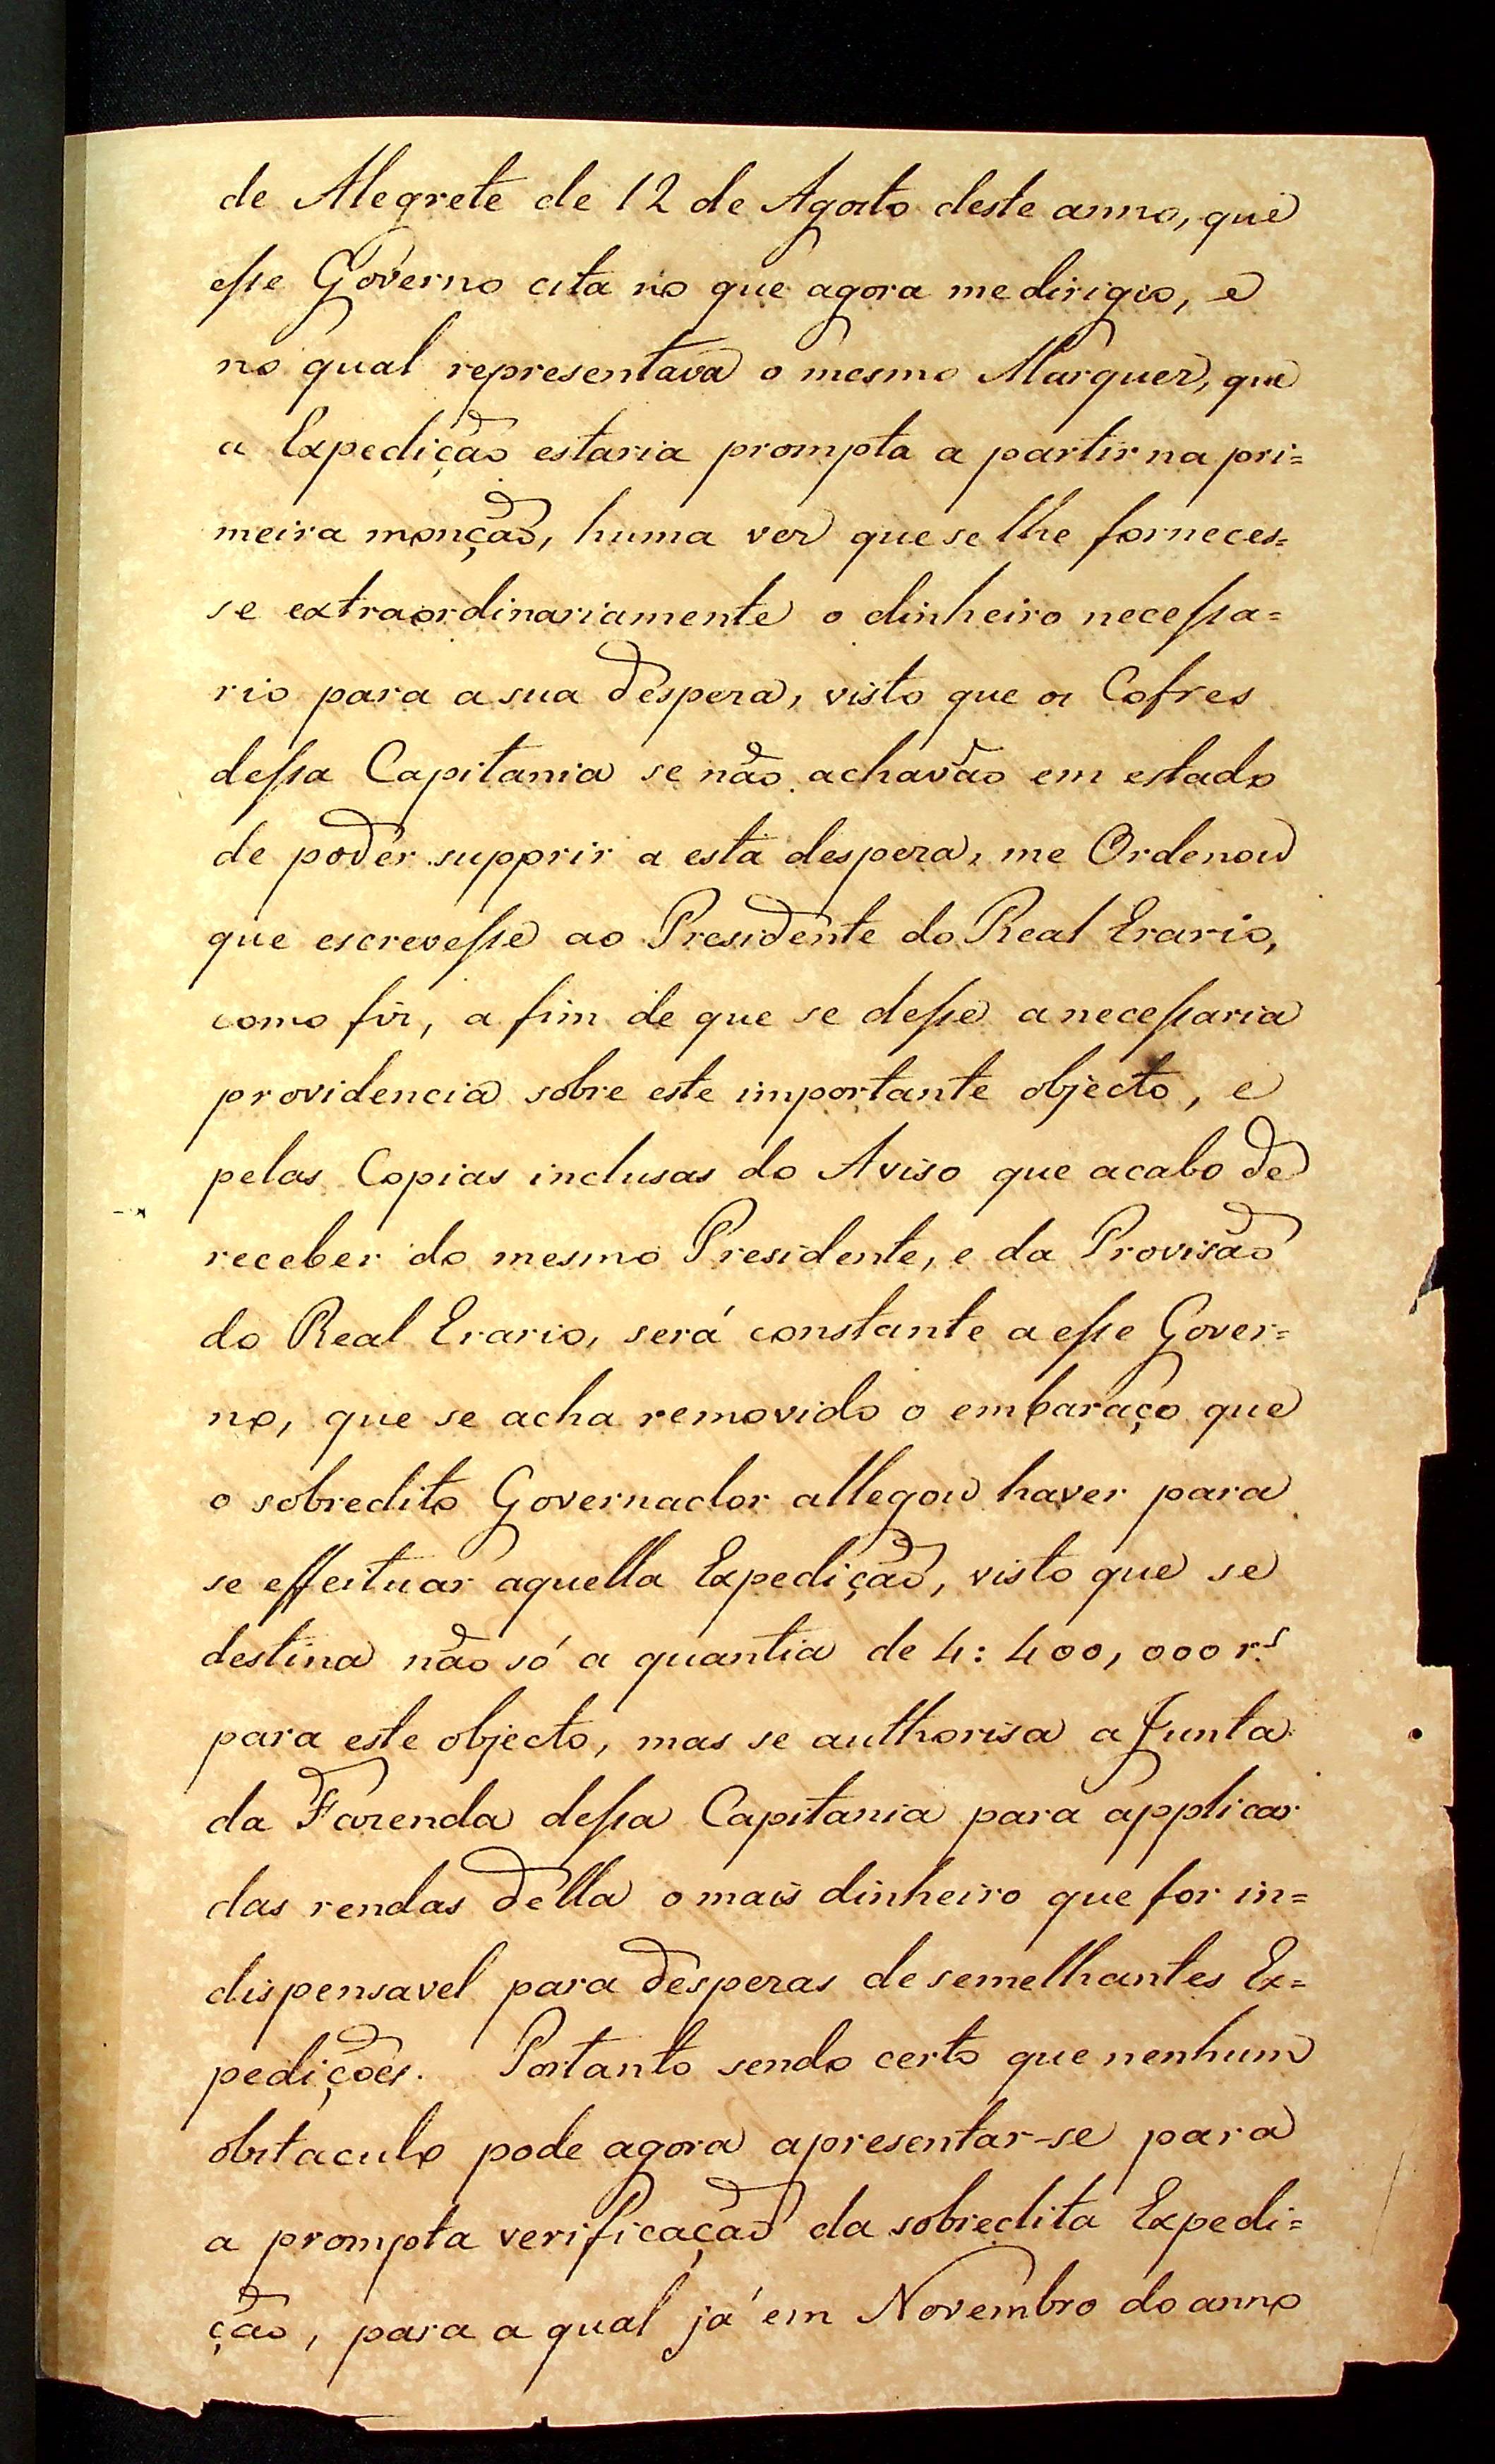 de Alegrete de 12 de Agosto deste anno, que
esse Governo cita no que agora me dirigio, e
no qual representava o mesmo Marquez, que
a Expedição estaria prompta a partir na pri=
meira monção, huma vez que se lhe forneces=
se extraordinariamente o dinheiro necessa=
rio para a sua despeza, visto que os Cofres
dessa Capitania se não achavão em estado
de poder supprir a esta despeza, me Ordenou
que escrevesse ao Presidente do Real Erario,
como fiz, a fim de que se desse a necessaria
providencia sobre este importante objecto, e
pelas Copias inclusas do Aviso que acabo de
receber do mesmo Presidente, e da Provisão
do Real Erario, será constante a esse Gover=
no, que se acha removido o embaraço que
o sobredito Governador allegou haver para
se effeituar aquella Expedição, visto que se
destina não só a quantia de 4:400,000 r.s
para este objecto, mas se authorisa a Junta
da Fazenda dessa Capitania para applicar
das rendas della o mais dinheiro que for in=
dispensavel para despezas de semelhantes Ex=
pedições. Portanto sendo certo que nenhum
obstaculo pode agora apresentar-se para
a prompta verificação da sobredita Expedi=
ção, para a qual já em Novembro do anno